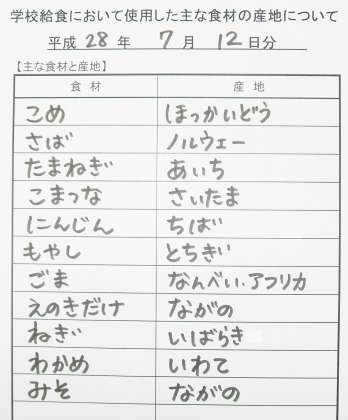 学校給食において使用した主な食材の産地について
平成 28 年 7 月 12 日分
【主な食材と産地】
食材 産地
こめ ほっかいどう
さば ノルウェー
たまねぎ あいち
こまつな さいたま
にんじん ちば
もやし とちぎ
ごま なんべい.アフリカ
えのきだけ ながの
ねぎ いばらき
わかめ いわて
みそ ながの